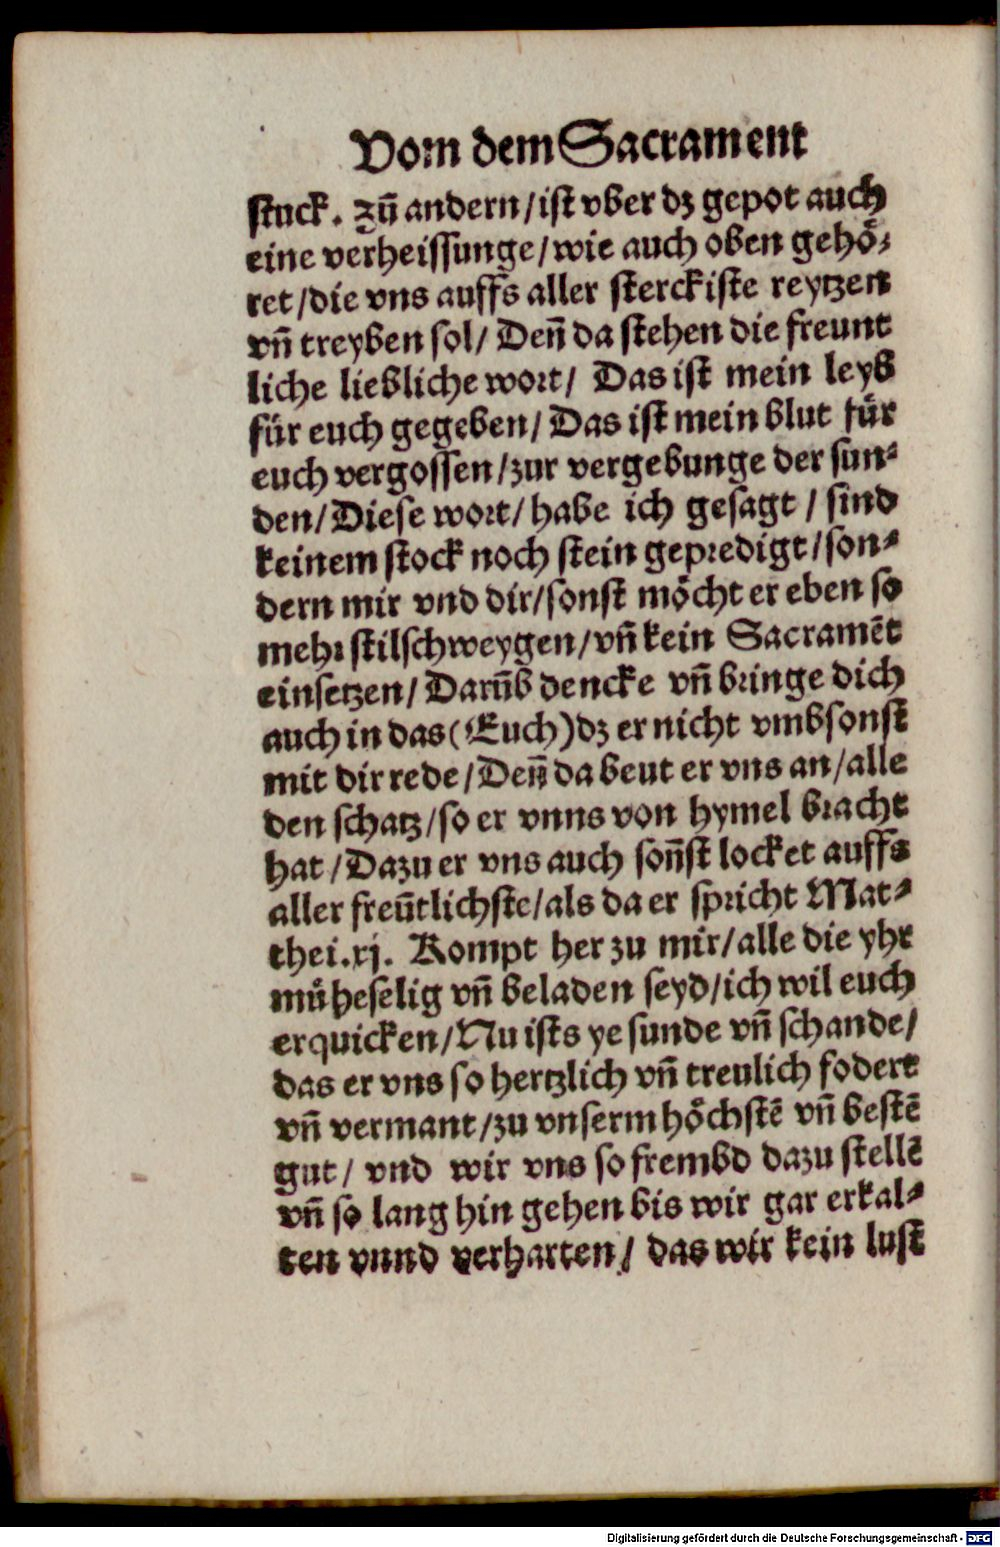 Vom dem Sacrament
stuck. Zū andern/ist vber dz gepot auch
eine verheissunge/wie auch oben gehö-
ret/die vns auffs aller sterckiste reytzen
vñ treyben sol/ Deñ da stehen die freunt
liche liebliche wort/ Das ist mein leyb
für euch gegeben/ Das ist mein blut für
euch vergossen/zur vergebunge der sun-
den/Diese wort/habe ich gesagt / sind
keinem stock noch stein gepredigt/son-
dern mir vnd dir/sonst möcht er eben so
mehr stilschweygen/vñ kein Sacramēt
einsetzen/ Darūb dencke vñ bringe dich
auch in das (Euch) dz er nicht vmbsonst
mit dir rede/Deñ da beut er vns an/alle
den schatz/so er vnns von hymel bracht
hat/Dazu er vns auch soñst locket auffs
aller freūtlichste/als da er spricht Mat-
thei.xj. Kompt her zu mir/alle die yhr
müheselig vñ beladen seyd/ich wil euch
erquicken/Nu ists ye sunde vñ schande/
das er vns so hertzlich vñ treulich fodert
vñ vermant/zu vnserm höchstē vñ bestē
gut/ vnd wir vns so frembd dazu stellē
vñ so lang hin gehen bis wir gar erkal-
ten vnnd verharten/ das wir kein lust
Digitalisierung gefördert durch die Deutsche Forschungsgemeinschaft - DFG